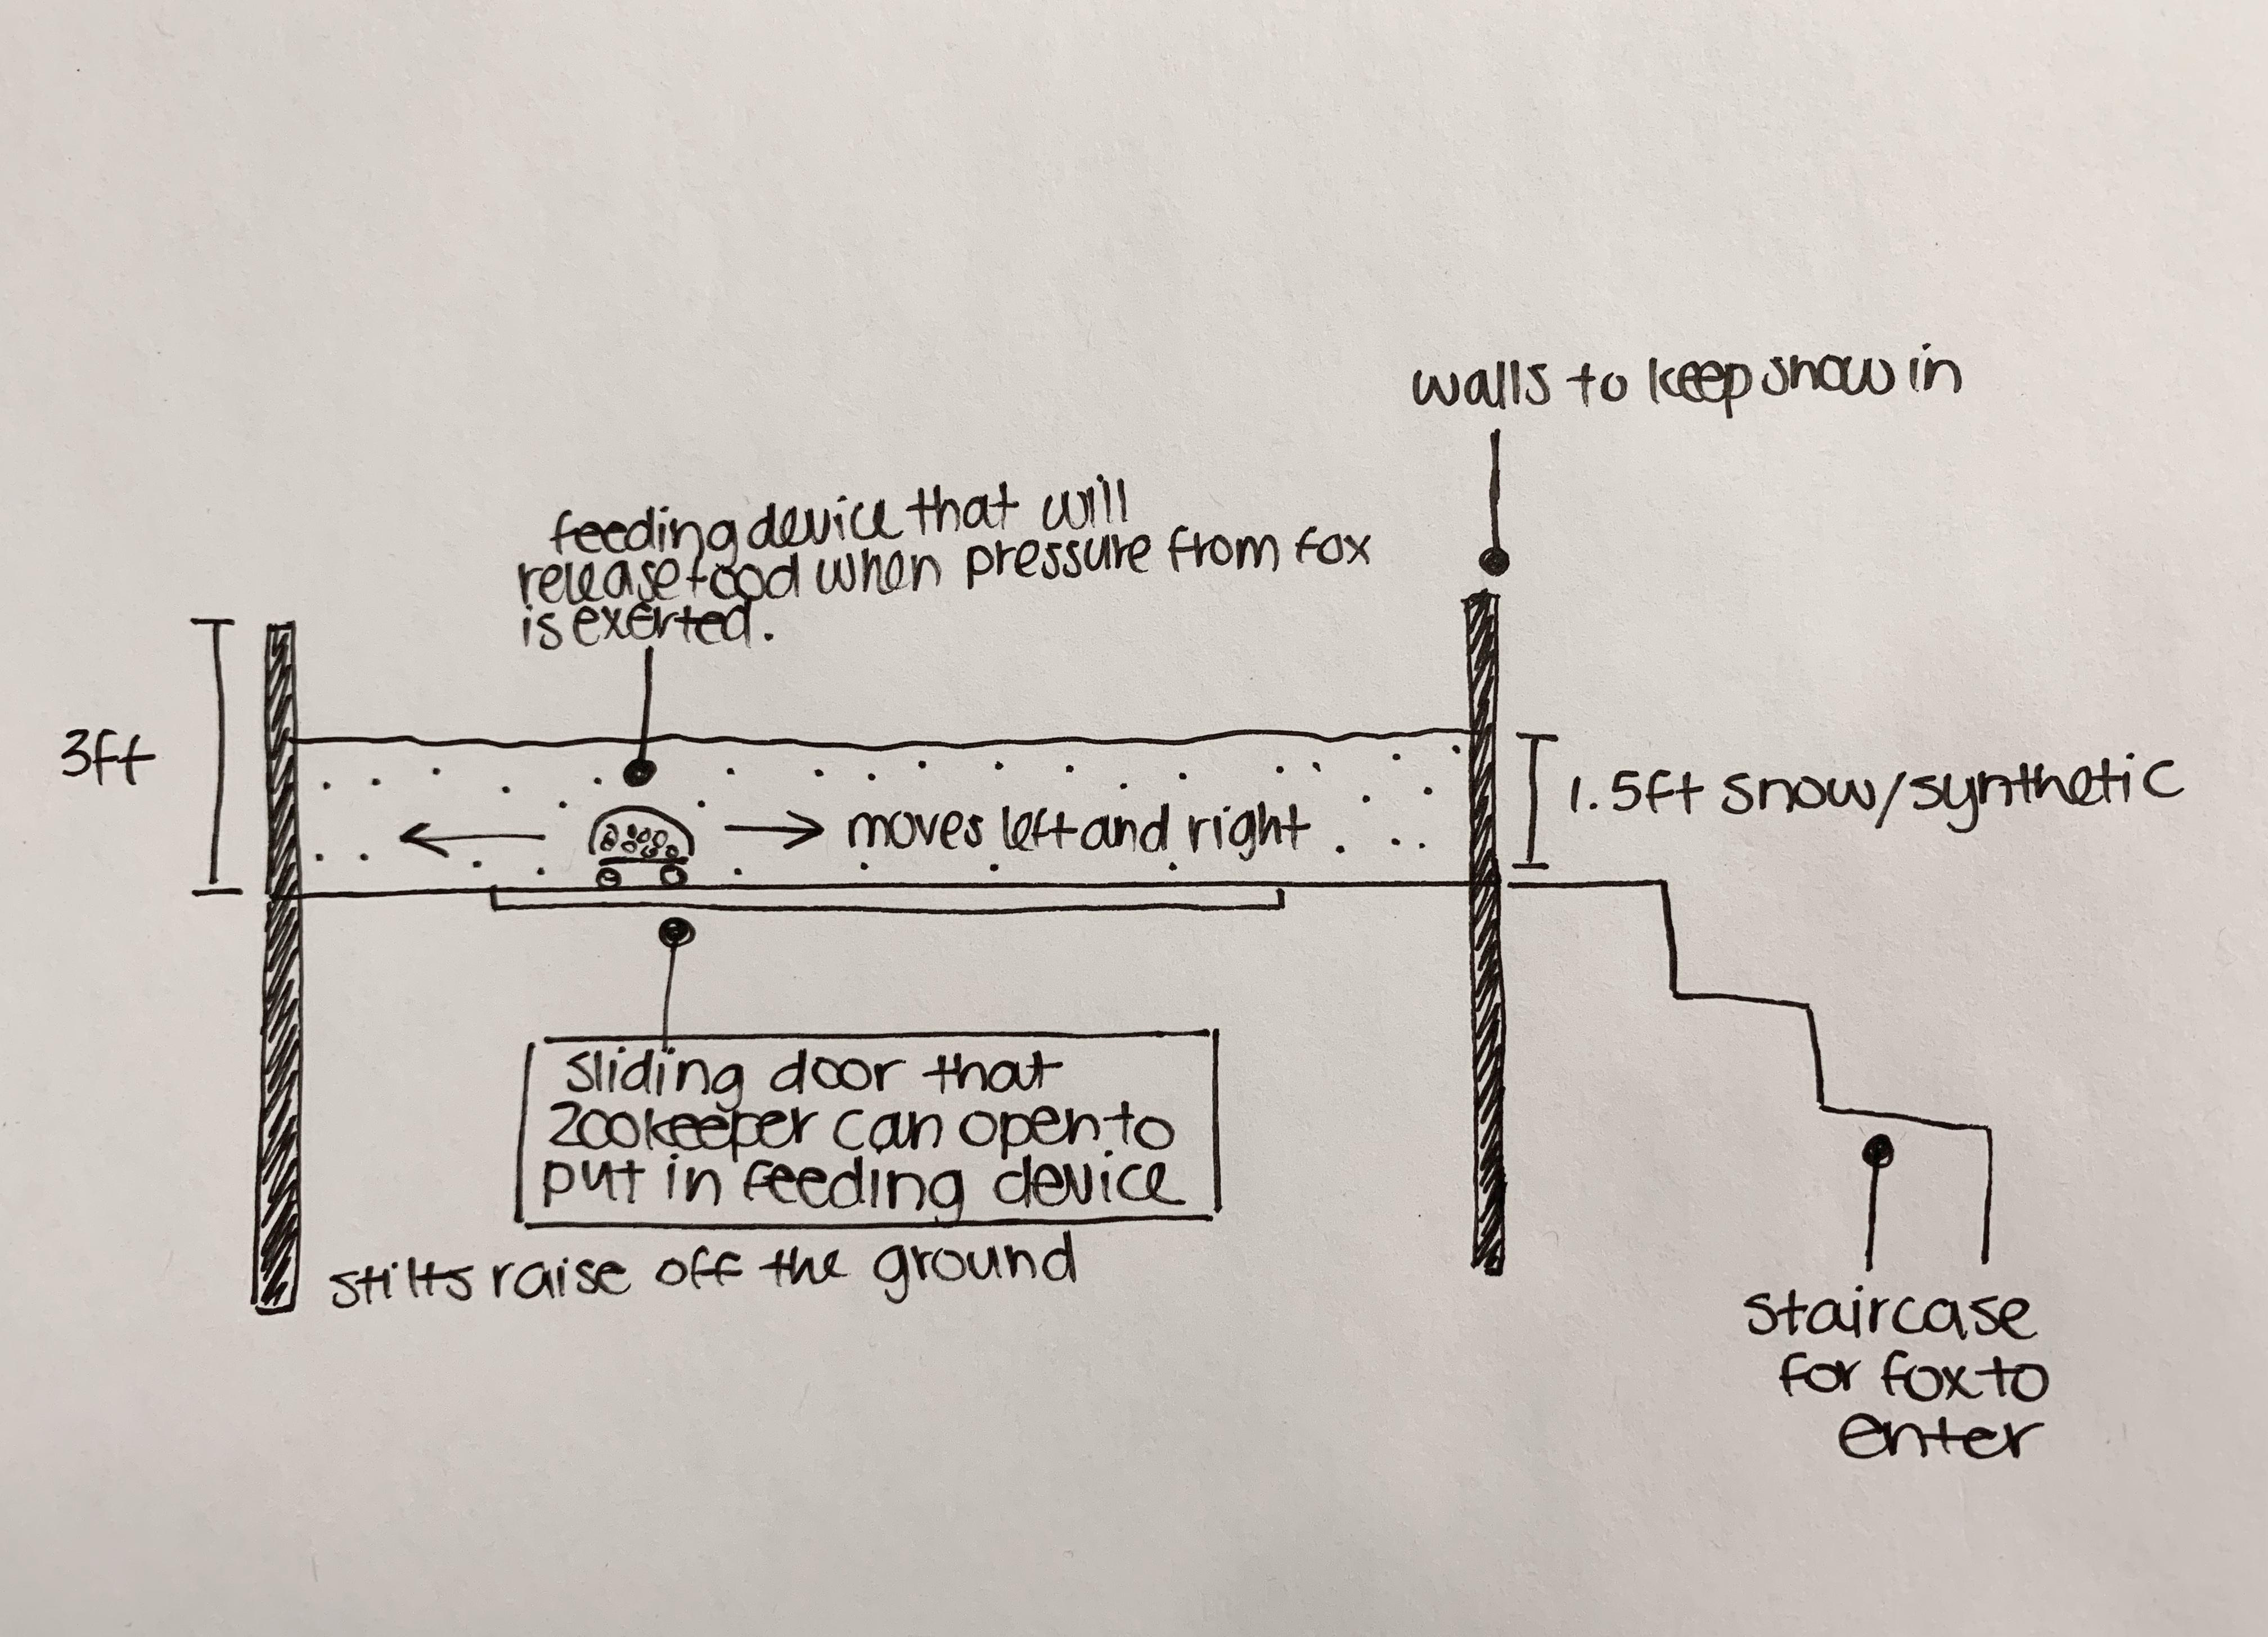 walls to keep snow in
feeding device that will
release food when pressure from fox
is exerted.
3ft
1.5ft snow/synthetic
moves left and right
sliding door that
zookeeper can open to
put in feeding device
stilts raise off the ground
staircase
for fox to
enter